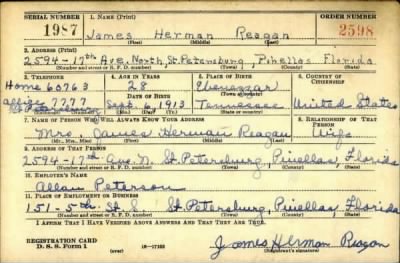 SERIAL NUMBER 1. NAME (Print) ORDER NUMBER
1987 James Herman Reagan 2598
(First) (Middle) (Last)
2. ADDRESS (Print)
2594-17th Ave. North, St. Petersburg, Pinellas, Florida
(Number and street or R. F. D. number) (Town) (County) (State)
3. TELEPHONE 4. AGE IN YEARS 5. PLACE OF BIRTH 6. COUNTRY OF CITIZENSHIP
Home 60763 28 Ebenezzar
office 7777 DATE OF BIRTH
Sept. 6, 1913 Tennessee United States
(Mo.) (Day) (Yr.) (State or country)
7. NAME OF PERSON WHO WILL ALWAYS KNOW YOUR ADDRESS 8. RELATIONSHIP OF THAT PERSON
Mrs. James Herman Reagan Wife
(Mr., Mrs., Miss) (First) (Middle) (Last)
9. ADDRESS OF THAT PERSON
2594-17th Ave. N. St. Petersburg, Pinellas, Florida
(Number and street or R. F. D. number) (Town) (County) (State)
10. EMPLOYER'S NAME
Allan Peterson
11. PLACE OF EMPLOYMENT OR BUSINESS
151-5th St. S. St. Petersburg, Pinellas, Florida
(Number and street or R. F. D. number) (Town) (County) (State)
I AFFIRM THAT I HAVE VERIFIED ABOVE ANSWERS AND THAT THEY ARE TRUE.
REGISTRATION CARD
D. S. S. Form 1 (over) James Herman Reagan